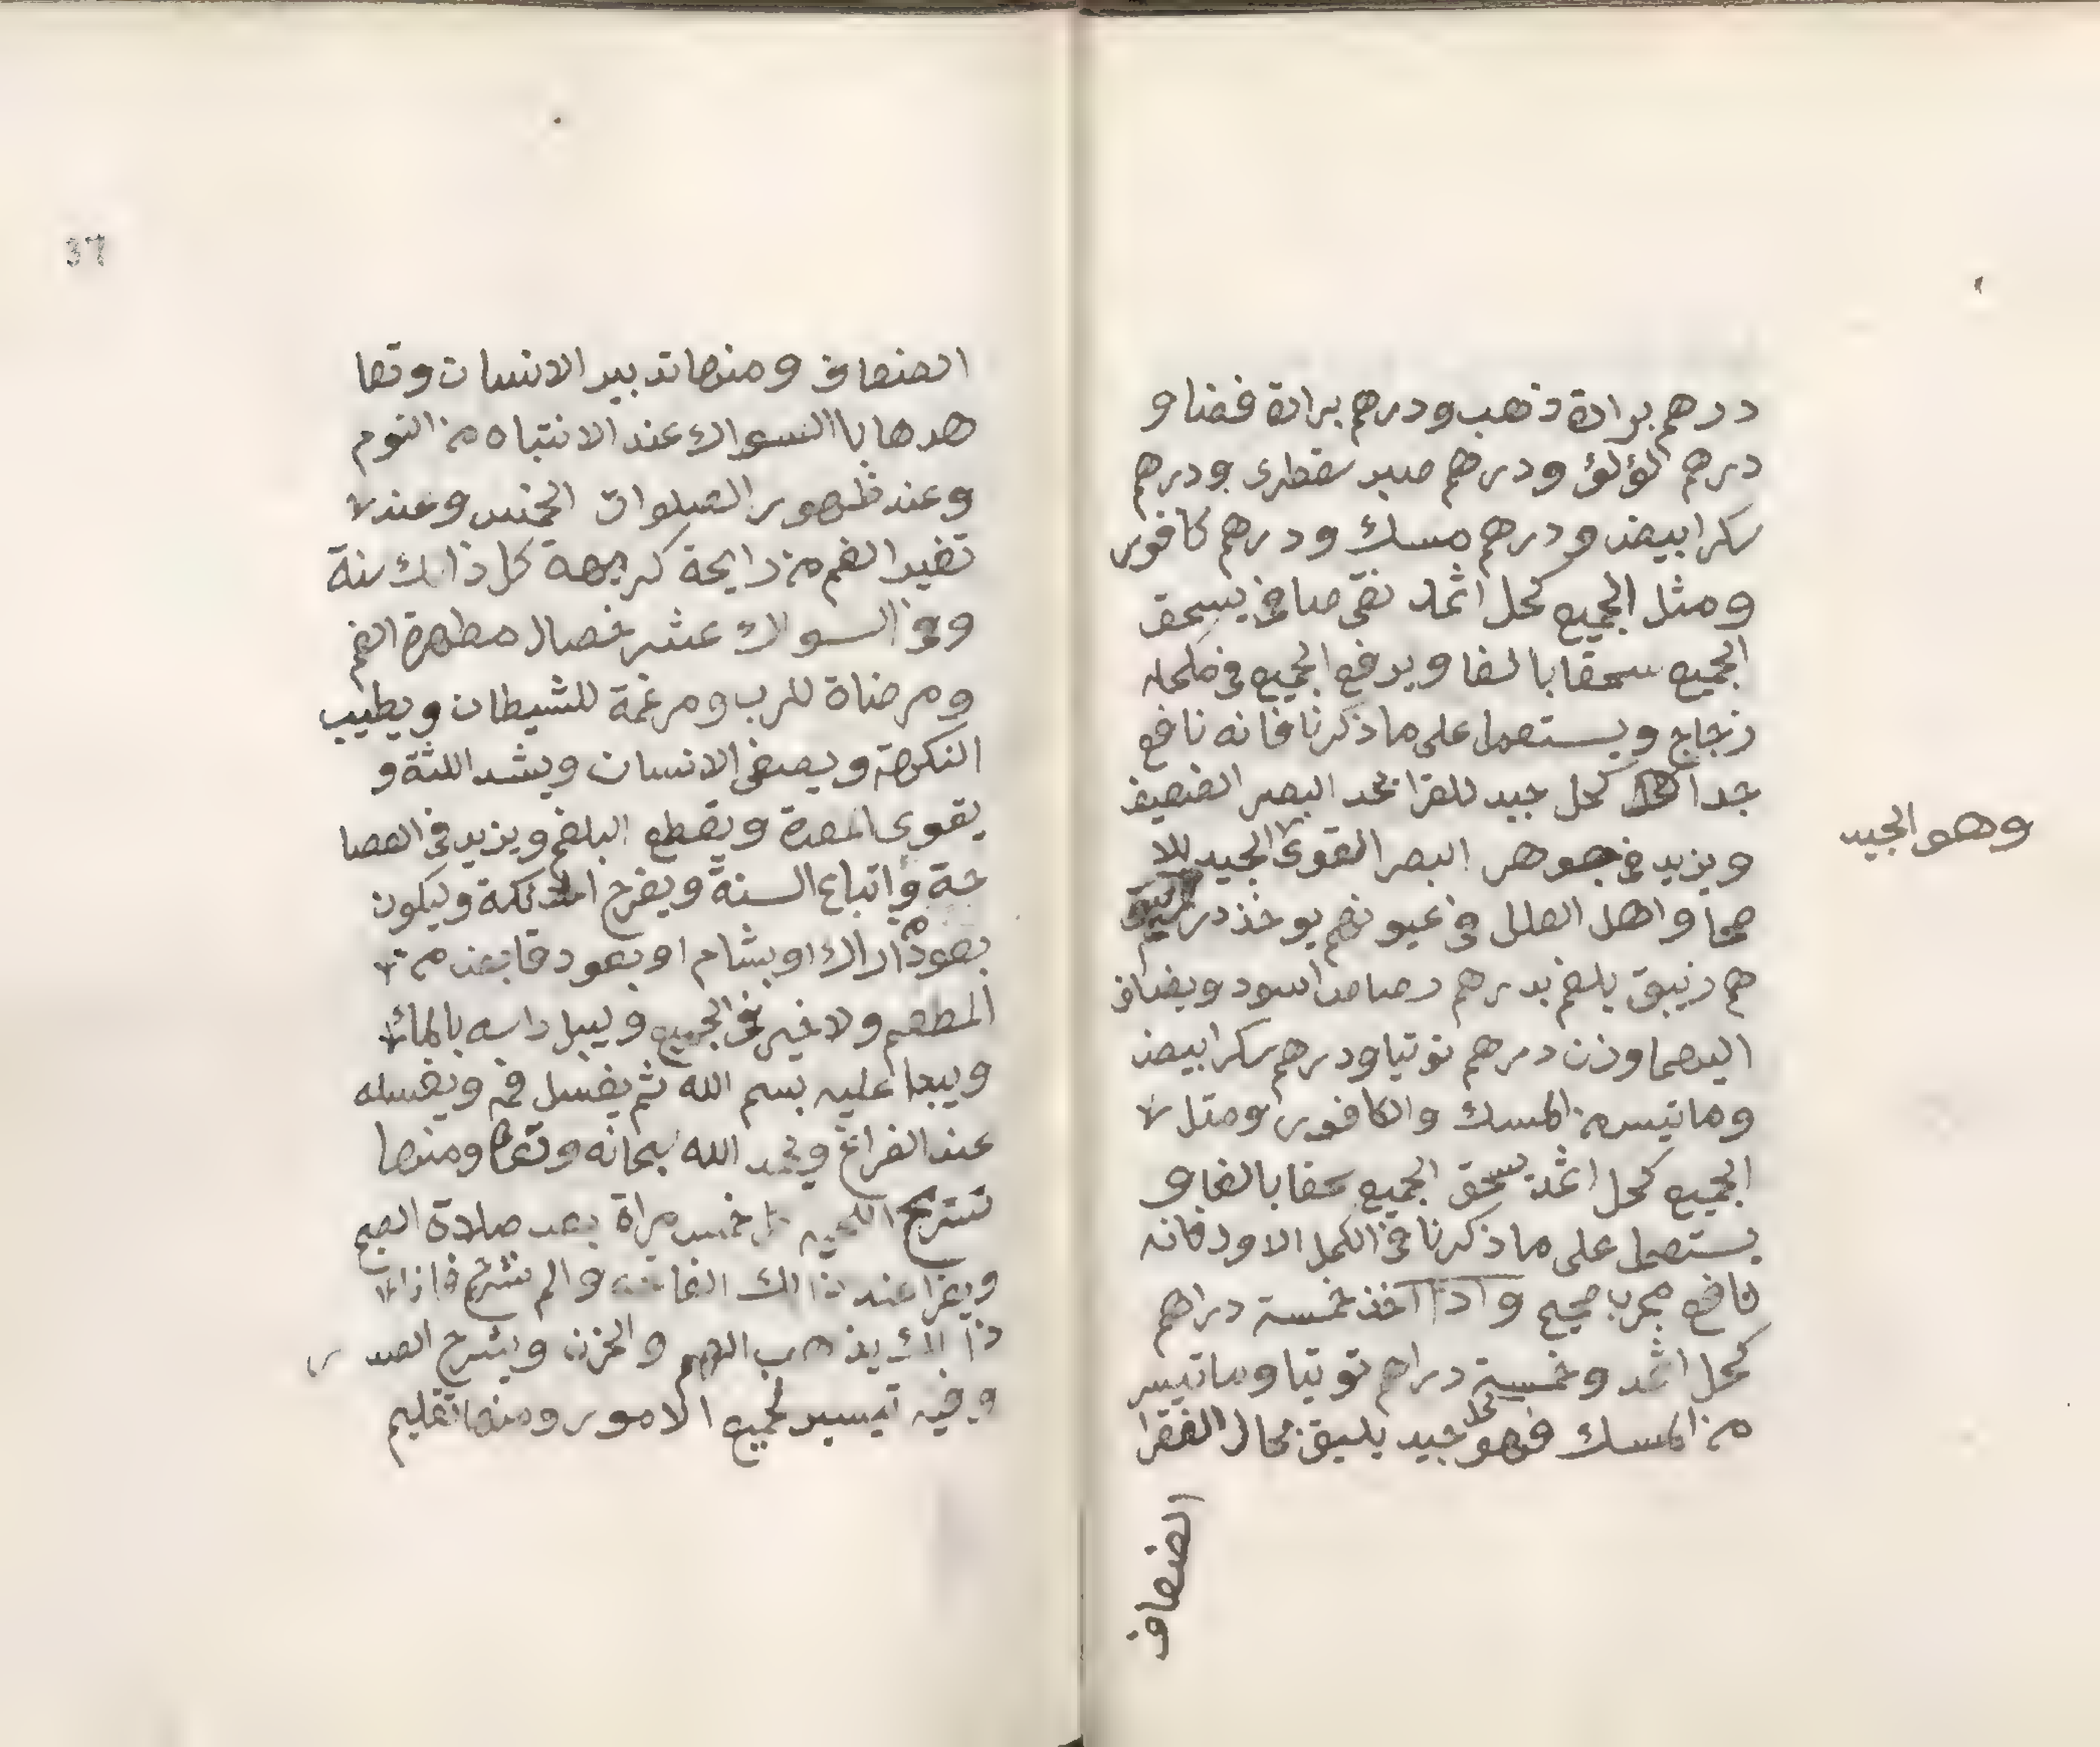 درهم برادة ذهب ودرهم برادة فضا و
درهم لؤلؤ ودرهم صبر سقطرى ودرهم
سكر ابيض ودرهم مسك ودرهم كافور
ومثل الجميع كحل اثمد نقي صافي يسحق
الجميع سحقا بالغا ويرفع الجميع في مكحله
زجاج ويستعمل على ما ذكرنا فانه نافع
جدا كحل جيد للقرا يحد البصر الضعيف
ويزيد في جوهر البصر القوى الجيد للا
وهو الجيد
صحا واهل العلل في عيونهم يوخذ در
هم زيبق يلغم بدرهم رصاص اسود ويضاف
اليهما وزن درهم توتيا ودرهم سكر ابيض
وما تيسر من المسك والكافور ومثل
الجميع كحل اثمد يسحق الجميع سحقا بالغا و
يستعمل على ما ذكرنا في الكحل الاول فانه
نافع مجرب صحيح واذا اخذ خمسة دراهم
كحل اثمد وخمسة دراهم توتيا وما تيسر
من المسك فهو كحل جيد يليق بحال الفقرا
الضعاف
37
الضعاف ومنها تدبير الانسان وتعا
هدها باالسواك عند الانتباه من النوم
وعند ظهور الصلوات الخمس وعند
تغير الفم من رايحة كريهة كل ذالك سنة
وفي السواك عشر خصال مطهرة الفم
ومرضاة للرب ومرغمة للشيطان ويطيب
النكهة ويصفى الانسان ويشد اللثة و
يقوى المعدة ويقطع البلغم ويزيد في الفصا
حة واتباع السنة ويفرح الملائكة ويكون
بعود اراك او بشام او بعود قابض من
المطعم ولا خير في الجميع ويبل راسه بالماء
ويبدا عليه بسم الله ثم يغسل فمه ويغسله
عند الفراغ ويحمد الله سبحانه وتعالى ومنها
تسريح اللحيه خمس مراة بعد صلاة الصبح
ويقرا عند ذالك الفاتحه والم نشرح فان
ذالك يذهب الهم والحزن ويشرح الصدر
وفيه تيسير لجميع الامور ومنها تقليم